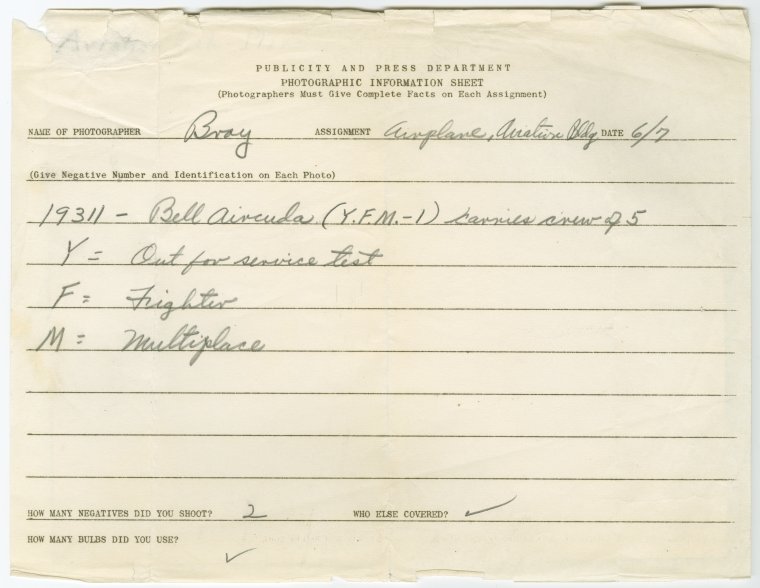 PUBLICITY AND PRESS DEPARTMENT
PHOTOGRAPHIC INFORMATION SHEET
(Photographers Must Give Complete Facts on Each Assignment)
NAME OF PHOTOGRAPHER Bray ASSIGNMENT Airplane, Aviation Bldg DATE 6/7
(Give Negative Number and Identification on Each Photo)
19311 - Bell Aircuda (Y.F.M.-1) carries crew of 5
Y = Out for service test
F = Frighter
M = Multiplace
HOW MANY NEGATIVES DID YOU SHOOT? 2 WHO ELSE COVERED? ✓
HOW MANY BULBS DID YOU USE? ✓